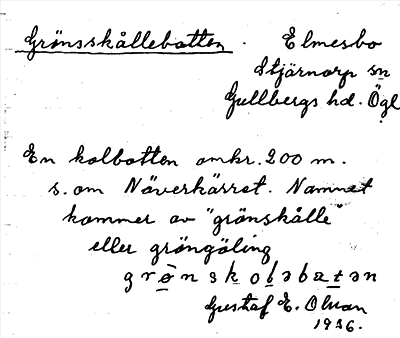 Grönsskållebotten. Elmesbo
Stjärnorp sn
Gullbergs hd. Ögl
En kolbotten omkr. 200 m.
s. om Näverkärret. Namnet
kommer av "grönskålle"
eller gröngöling
grönskoləbatən
Gustaf E. Olvan
1936.